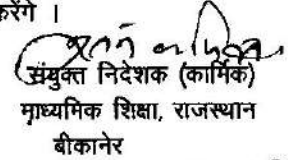 करेंगे ।
संयुक्त निदेशक (कार्मिक)
माध्यमिक शिक्षा, राजस्थान
बीकानेर